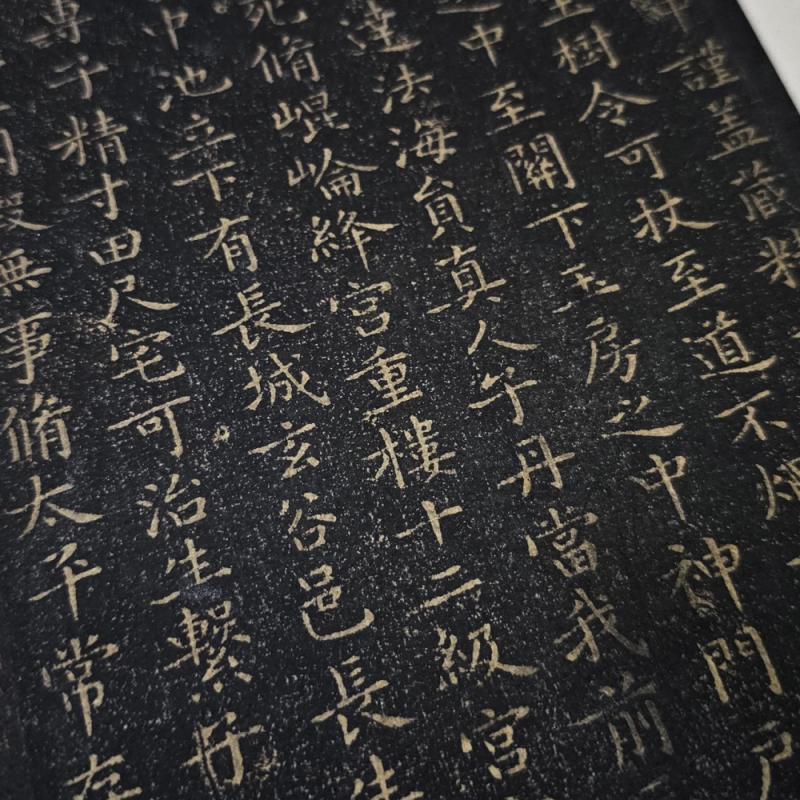 謹蓋藏精
玉樹令可杖至道不煩
之中至關下玉房之中神門戶
達法海員真人子丹當我前
死脩崐崘絳宮重樓十二級宮
中池立下有長城玄谷邑長生
專子精寸田尺宅可治生繫
無事脩太平常存